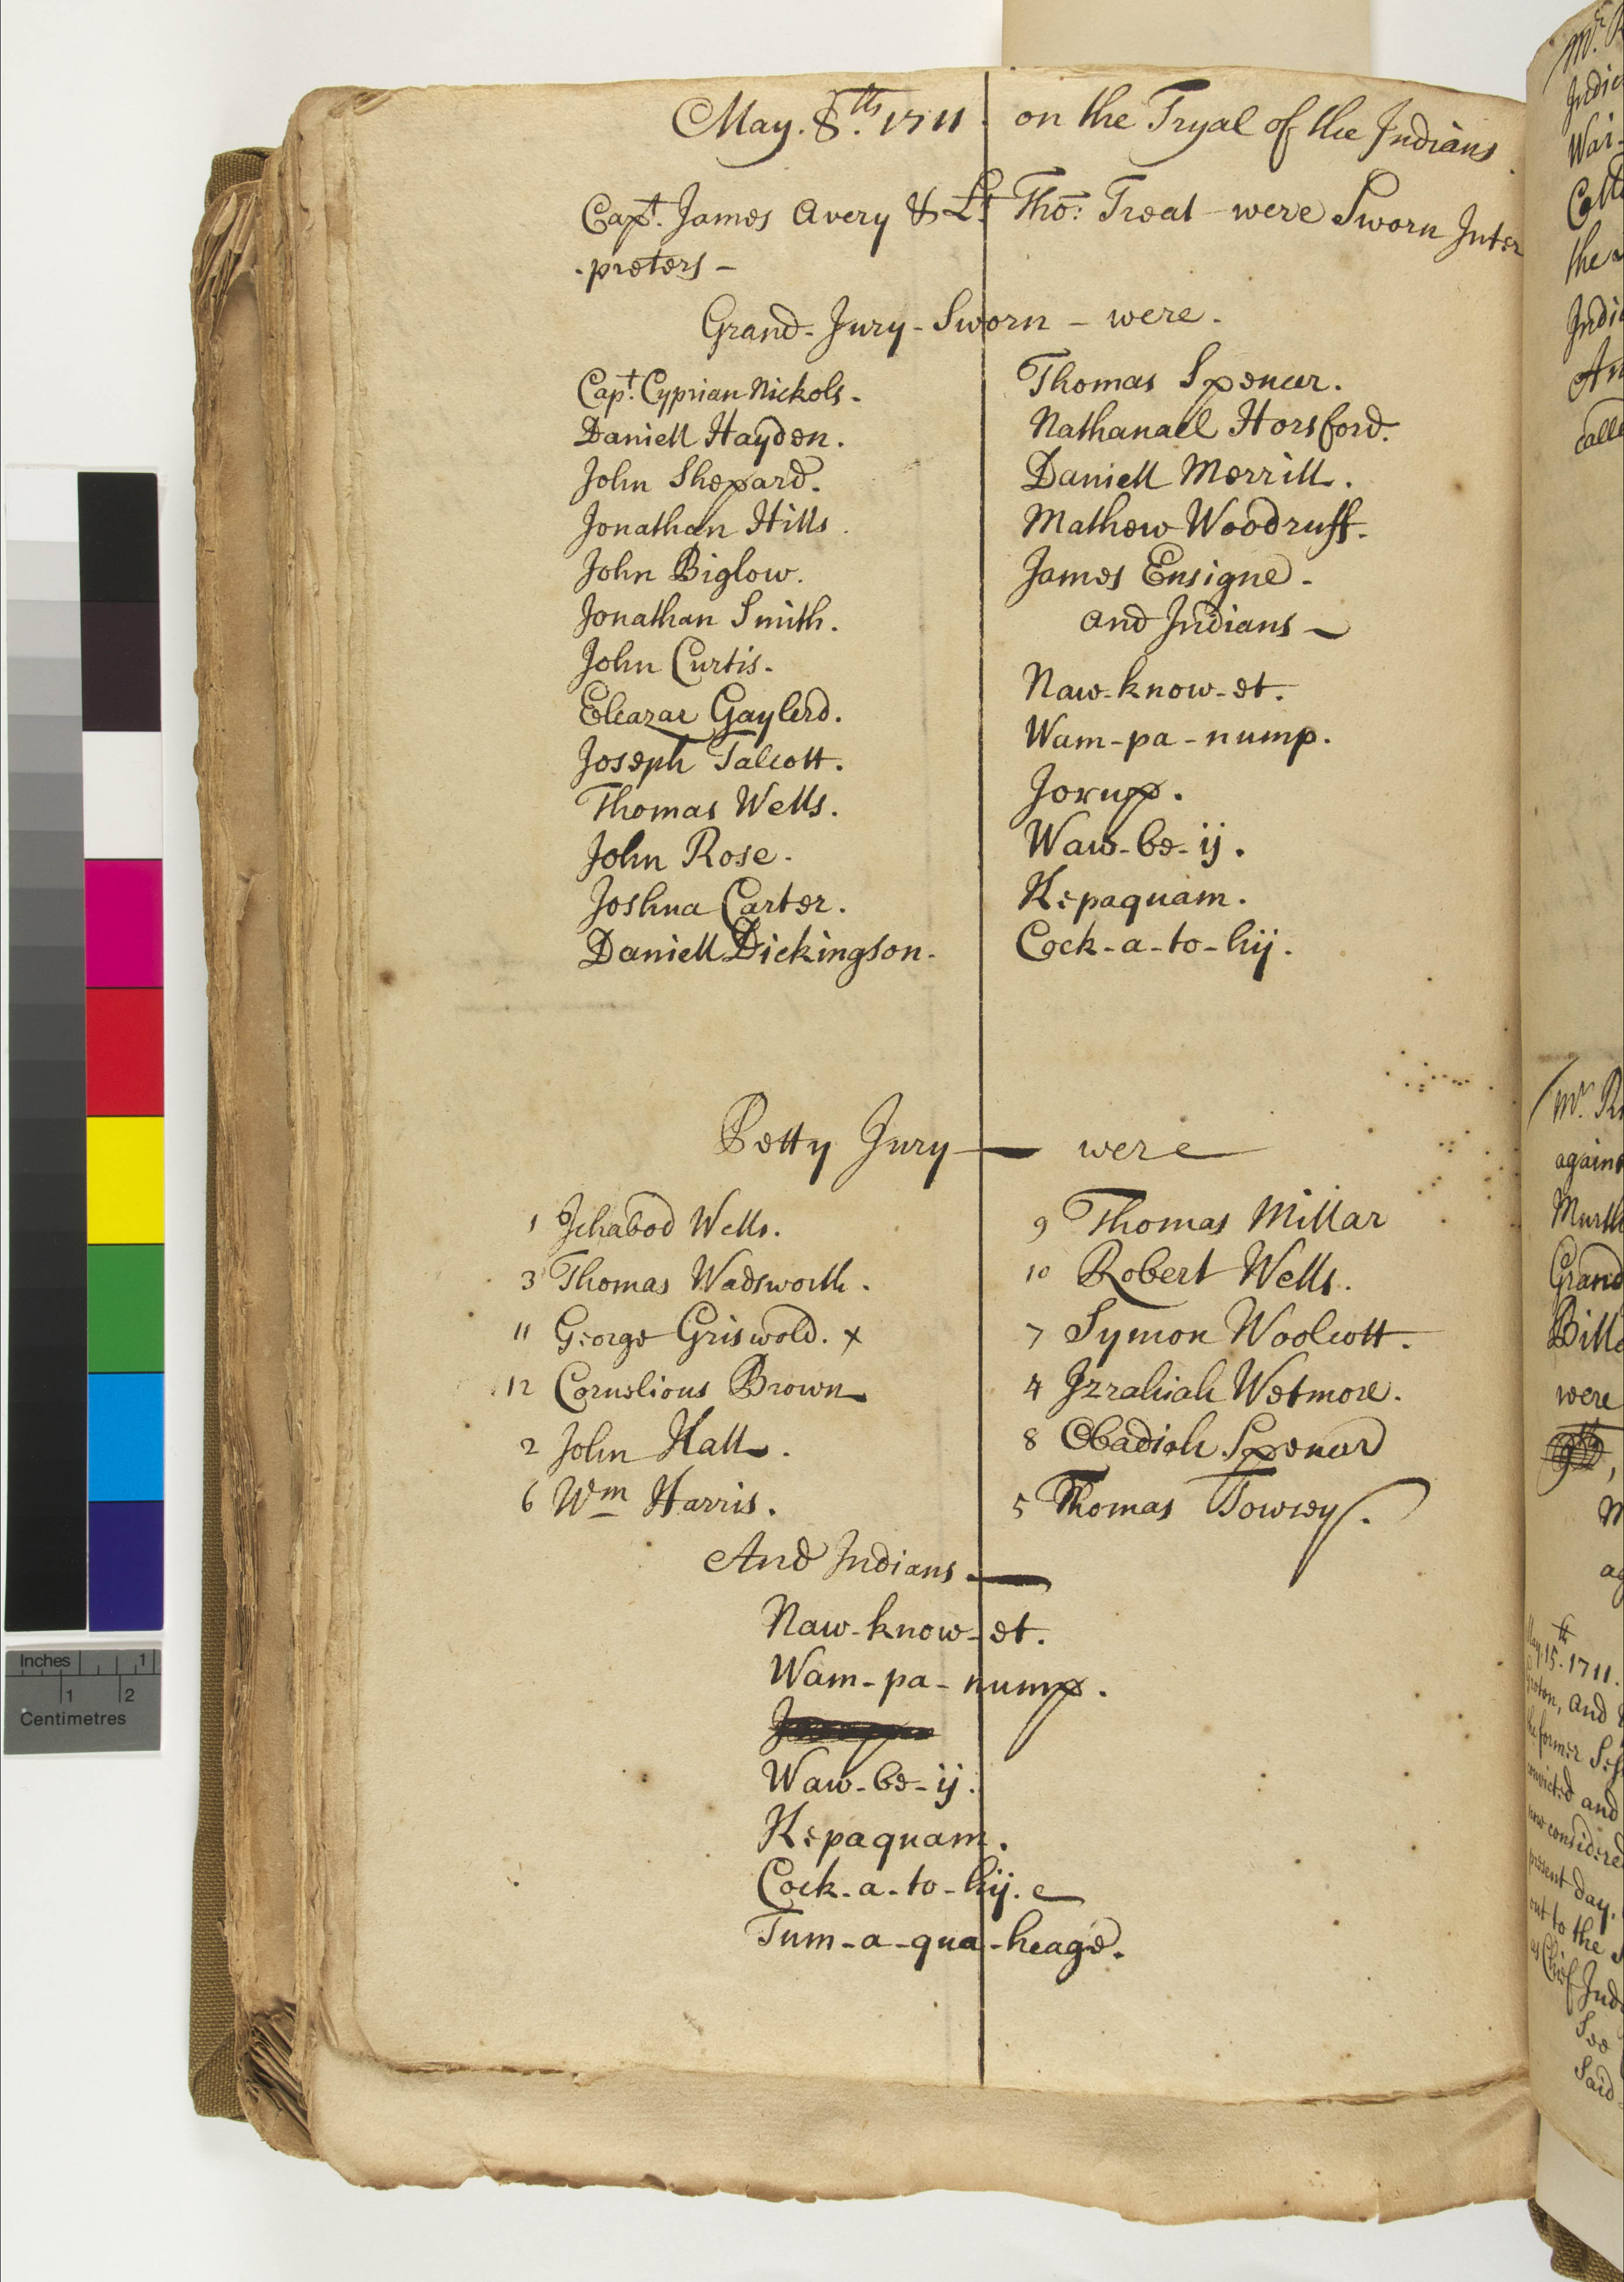 May. 8.th 1711. on the Tryal of the Indians
Capt. James Avery & Lt Tho: Treat were Sworn Inter
-preters -
Grand-Jury-Sworn - were.
Capt. Cyprian Nickols.
Daniell Hayden.
John Shepard.
Jonathan Hills.
John Biglow.
Jonathan Smith.
John Curtis.
Eleazar Gaylerd.
Joseph Talcott.
Thomas Wells.
John Rose.
Joshua Carter.
Daniell Dickingson.
Thomas Spencer.
Nathanael Horsford.
Daniell Merrill.
Mathew Woodruff.
James Ensigne.
and Indians
Naw-know-et.
Wam-pa-nump.
Jorup.
Waw-be-ij.
Kepaquam.
Cock-a-to-hij.
Petty Jury - were
1 Ichabod Wells.
3 Thomas Wadsworth.
11 George Griswold. x
12 Cornelious Brown
2 John Hall.
6 Wm Harris.
9 Thomas Millar
10 Robert Wells.
7 Symon Woolcott.
4 Izrahiah Wetmore.
8 Obadiah Spencer
5 Thomas Towsey.
And Indians
Naw-know-et.
Wam-pa-nump.
Waw-be-ij.
Kepaquam.
Cock-a-to-hij.
Tum-a-qua-heage.
against
Grand
were
May. 15th. 1711.
and
the former
convicted and
now considered
present day.
out to the
as Chief
See
Said
Inches 1
1 2
Centimetres